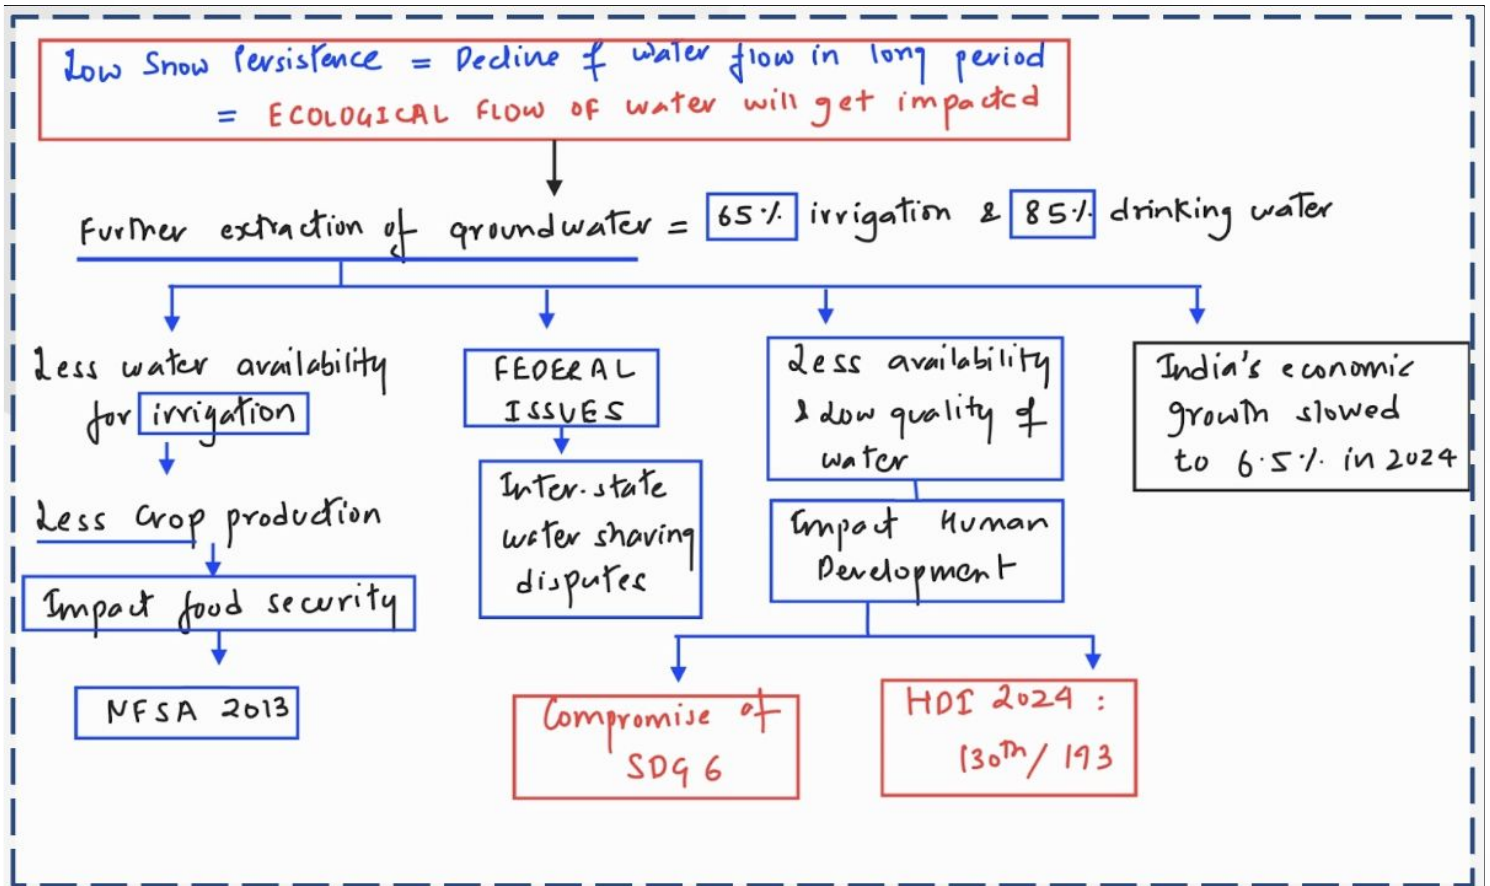 Low Snow Persistence = Decline of water flow in long period
= ECOLOGICAL FLOW OF water will get impacted
Further extraction of groundwater = 65% irrigation & 85% drinking water
Less water availability
for irrigation
Less crop production
Impact food security
NFSA 2013
FEDERAL
ISSUES
Inter-state
water sharing
disputes
Less availability
& Low quality of
water
Impact Human
Development
Compromise of
SDG 6
HDI 2024 :
130th/193
India's economic
growth slowed
to 6.5% in 2024